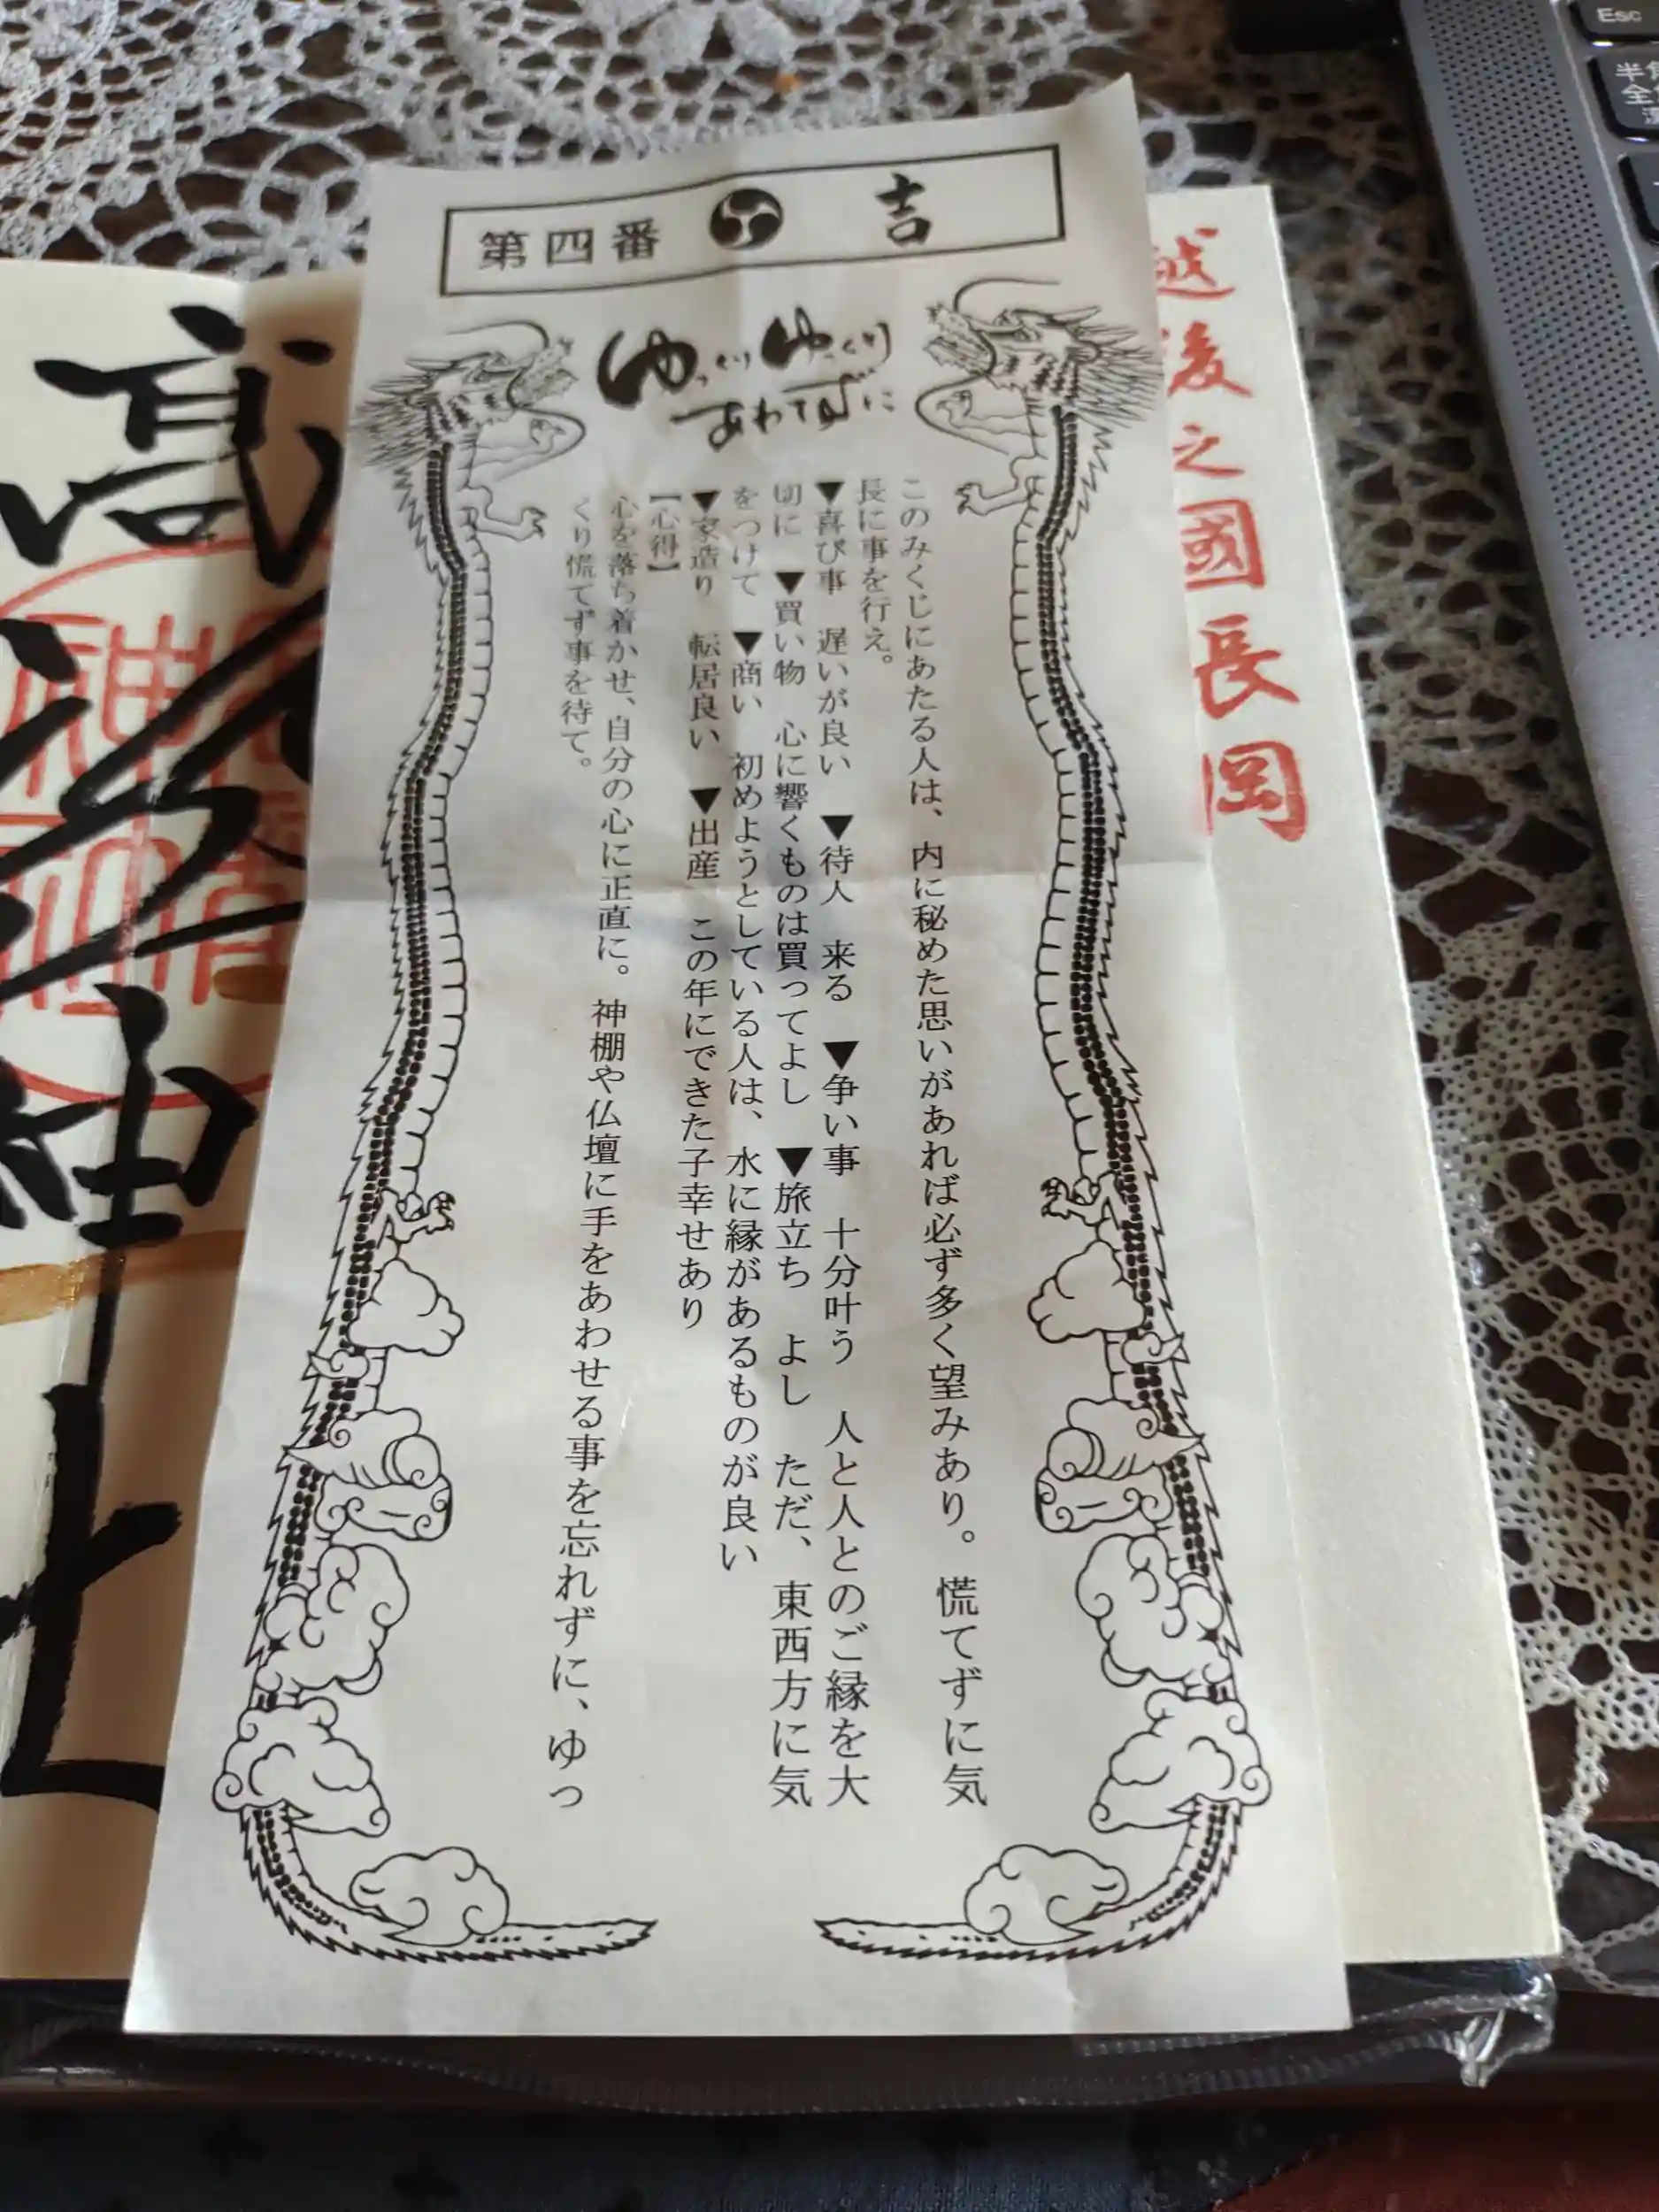 第四番 吉
ゆっくりゆっくり
あわてずに
このみくじにあたる人は、内に秘めた思いがあれば必ず多く望みあり。慌てずに気
長に事を行え。
▼喜び事 遅いが良い ▼待人 来る ▼争い事 十分叶う 人と人とのご縁を大
切に ▼買い物 心に響くものは買ってよし ▼旅立ち よし ただ、東西方に気
をつけて ▼商い 初めようとしている人は、水に縁があるものが良い
▼家造り 転居良い ▼出産 この年にできた子幸せあり
【心得】
心を落ち着かせ、自分の心に正直に。神棚や仏壇に手をあわせる事を忘れずに、ゆっ
くり慌てず事を待て。
越後之國長岡
高
Esc
半角
全角